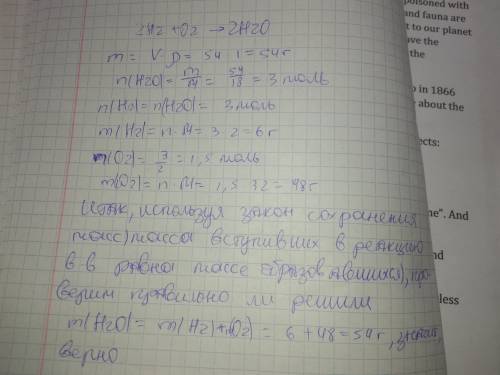 2H2 + O2 → 2H2O
m = V·ρ = 54·1 = 54г
n(H2O) = m/M = 54/18 = 3 моль
n(H2) = n(H2O) = 3 моль
m(H2) = n·M = 3·2 = 6г
n(O2) = 3/2 = 1,5 моль
m(O2) = n·M = 1,5·32 = 48г
Итак, используя закон сохранения
масс) масса вступивших в реакцию
в-в равна массе образовавшихся), про
верим правильно ли решили
m(H2O) = m(H2)+(O2) = 6+48 = 54г, значит,
верно
poisoned with
and fauna are
t to our planet
ave the
the
in 1866
about the
ects:
ne". And
nd
less